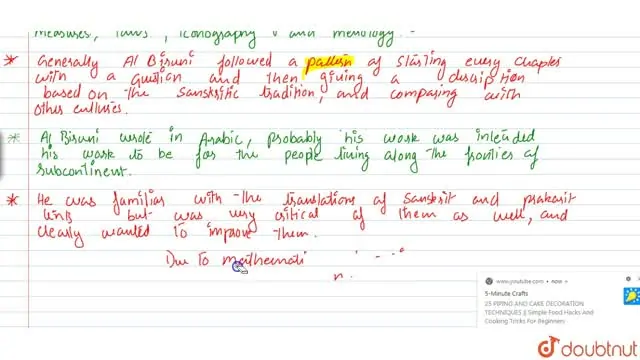 measures, laws, iconography & metrology :-
* Generally Al Biruni followed a pattern of starting every chapter
with a question and then giving a discription
based on the Sanskritic tradition, and comparing with
other cultures.
* Al Biruni wrote in Arabic, probably his work was intended
his work to be for the people living along the frontier of
subcontinent.
* He was familiar with the translations of Sanskrit and prakarit
but was very critical of them as well, and
clearly wanted to improve them.
Due to mathemati
www.youtube.com • now
5-Minute Crafts
25 PIPING AND CAKE DECORATION
TECHNIQUES || Simple Food Hacks And
Cooking Tricks For Beginners
doubtnut